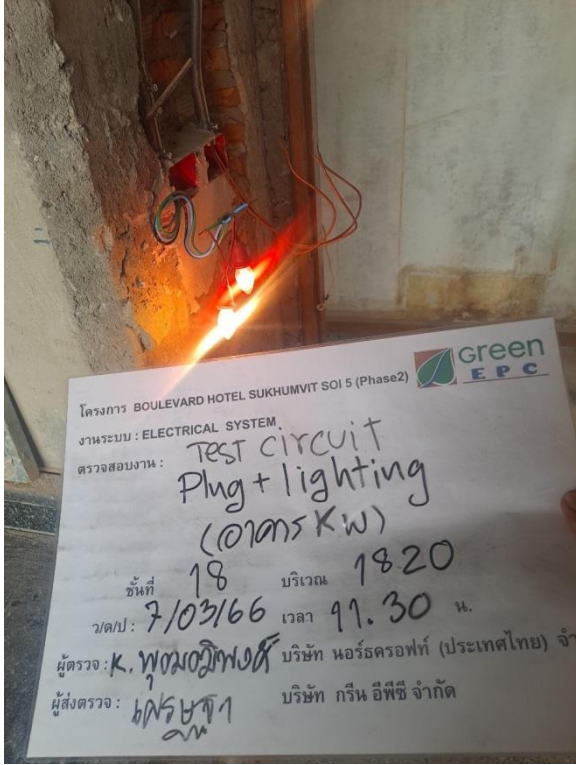 Green
EPC
โครงการ BOULEVARD HOTEL SUKHUMVIT SOI 5 (Phase2)
งานระบบ : ELECTRICAL SYSTEM
ตรวจสอบงาน : Test circuit
Plug + lighting
(อาคาร KW)
ชั้นที่ 18 บริเวณ 1820
ว/ด/ป : 7/03/66 เวลา 11.30 น.
ผู้ตรวจ : K. บริษัท นอร์ธครอฟท์ (ประเทศไทย) จำ
ผู้ส่งตรวจ : เศรษฐา บริษัท กรีน อีพีซี จำกัด